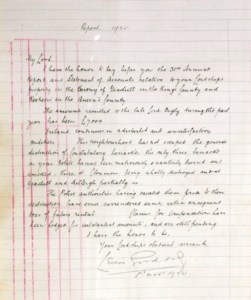 Report 1920
My Lord,
I have the honor to lay before you the 30th Annual
Report and Statement of Accounts relative to your Lordship's
property in the Barony of Geashill in the Kings County and
in the Queens County.
The amount remitted to the late Lord Digby during the past
year has been £7000
Ireland continues in a disturbed and unsatisfactory
condition. This neighbourhood has escaped the general
destruction of Constabulary barracks, the only three barracks
on your Estate having been maliciously or accidentally burned and
wholly destroyed and at
Geashill and Killeigh partially so.
The Police authorities having vacated them prior to their
destruction have since surrendered same, with a consequent
loss of future rental. Claims for compensation have
been lodged for substantial amounts, and are still pending.
I have the honor to be,
Your Lordship's obedient servant
1920